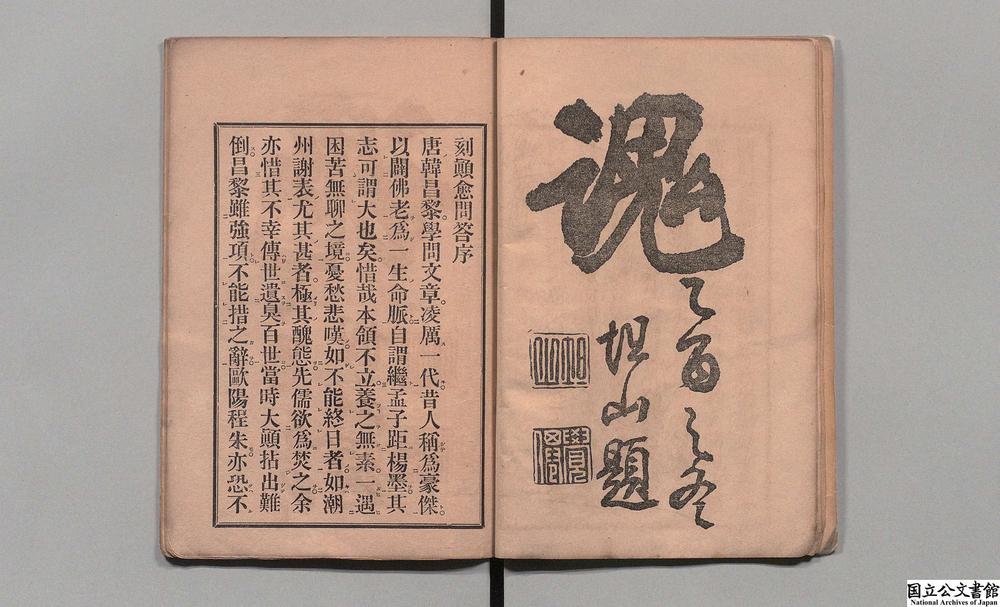 乙酉之冬
坦山題
刻顚愈問答序
唐韓昌黎。學問文章。凌厲一代昔人稱爲豪傑
以闢佛老爲一生命脈自謂繼孟子距楊墨其
志可謂大也矣惜哉本領不立養之無素一遇
困苦無聊之境憂愁悲嘆如不能終日者如潮
州謝表尤其甚者極其醜態先儒欲爲焚之余
亦惜其不幸傳世遺臭百世當時大顚拈出難
倒昌黎雖強項不能措之辭歐陽程朱亦恐不
国立公文書館
National Archives of Japan